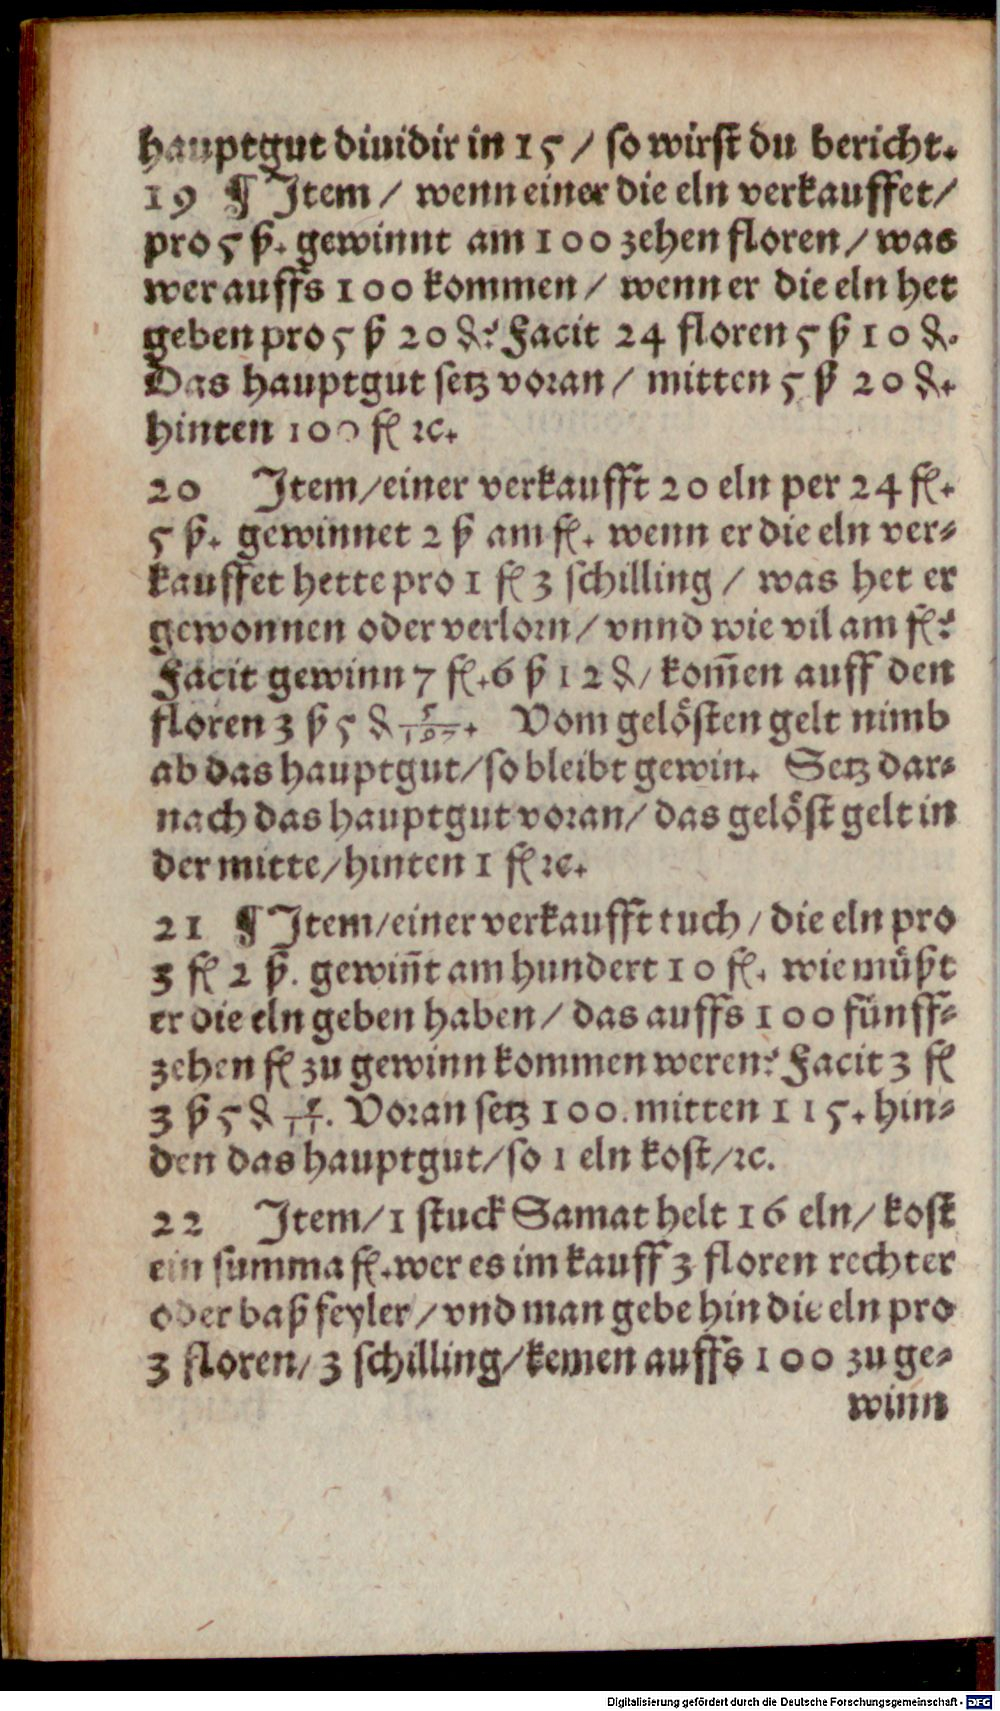 hauptgut diuidir in 15 / so wirst du bericht.
19 ¶ Item / wenn einer die eln verkauffet /
pro 5 ß. gewinnt am 100 zehen floren / was
wer auffs 100 kommen / wenn er die eln het
geben pro 5 ß 20 ₰? Facit 24 floren 5 ß 10 ₰.
Das hauptgut setz voran / mitten 5 ß 20 ₰.
hinten 100 fl ꝛc.
20 Item / einer verkaufft 20 eln per 24 fl.
5 ß. gewinnet 2 ß am fl. wenn er die eln ver⸗
kauffet hette pro 1 fl 3 schilling / was het er
gewonnen oder verlorn / vnnd wie vil am fl?
Facit gewinn 7 fl. 6 ß 12 ₰ / kom̄en auff den
floren 3 ß 5 ₰ 5/107. Vom gelösten gelt nimb
ab das hauptgut / so bleibt gewin. Setz dar⸗
nach das hauptgut voran / das gelöst gelt in
der mitte / hinten 1 fl ꝛc.
21 ¶ Item / einer verkaufft tuch / die eln pro
3 fl 2 ß. gewin̄t am hundert 10 fl. wie müßt
er die eln geben haben / das auffs 100 fünff⸗
zehen fl zu gewinn kommen weren? Facit 3 fl
3 ß 5 ₰ 5/11. Voran setz 100. mitten 115. hin⸗
den das hauptgut / so 1 eln kost / ꝛc.
22 Item / 1 stuck Samat helt 16 eln / kost
ein summa fl. wer es im kauff 3 floren rechter
oder baß feyler / vnd man gebe hin die eln pro
3 floren / 3 schilling / kemen auffs 100 zu ge⸗
winn
Digitalisierung gefördert durch die Deutsche Forschungsgemeinschaft - DFG